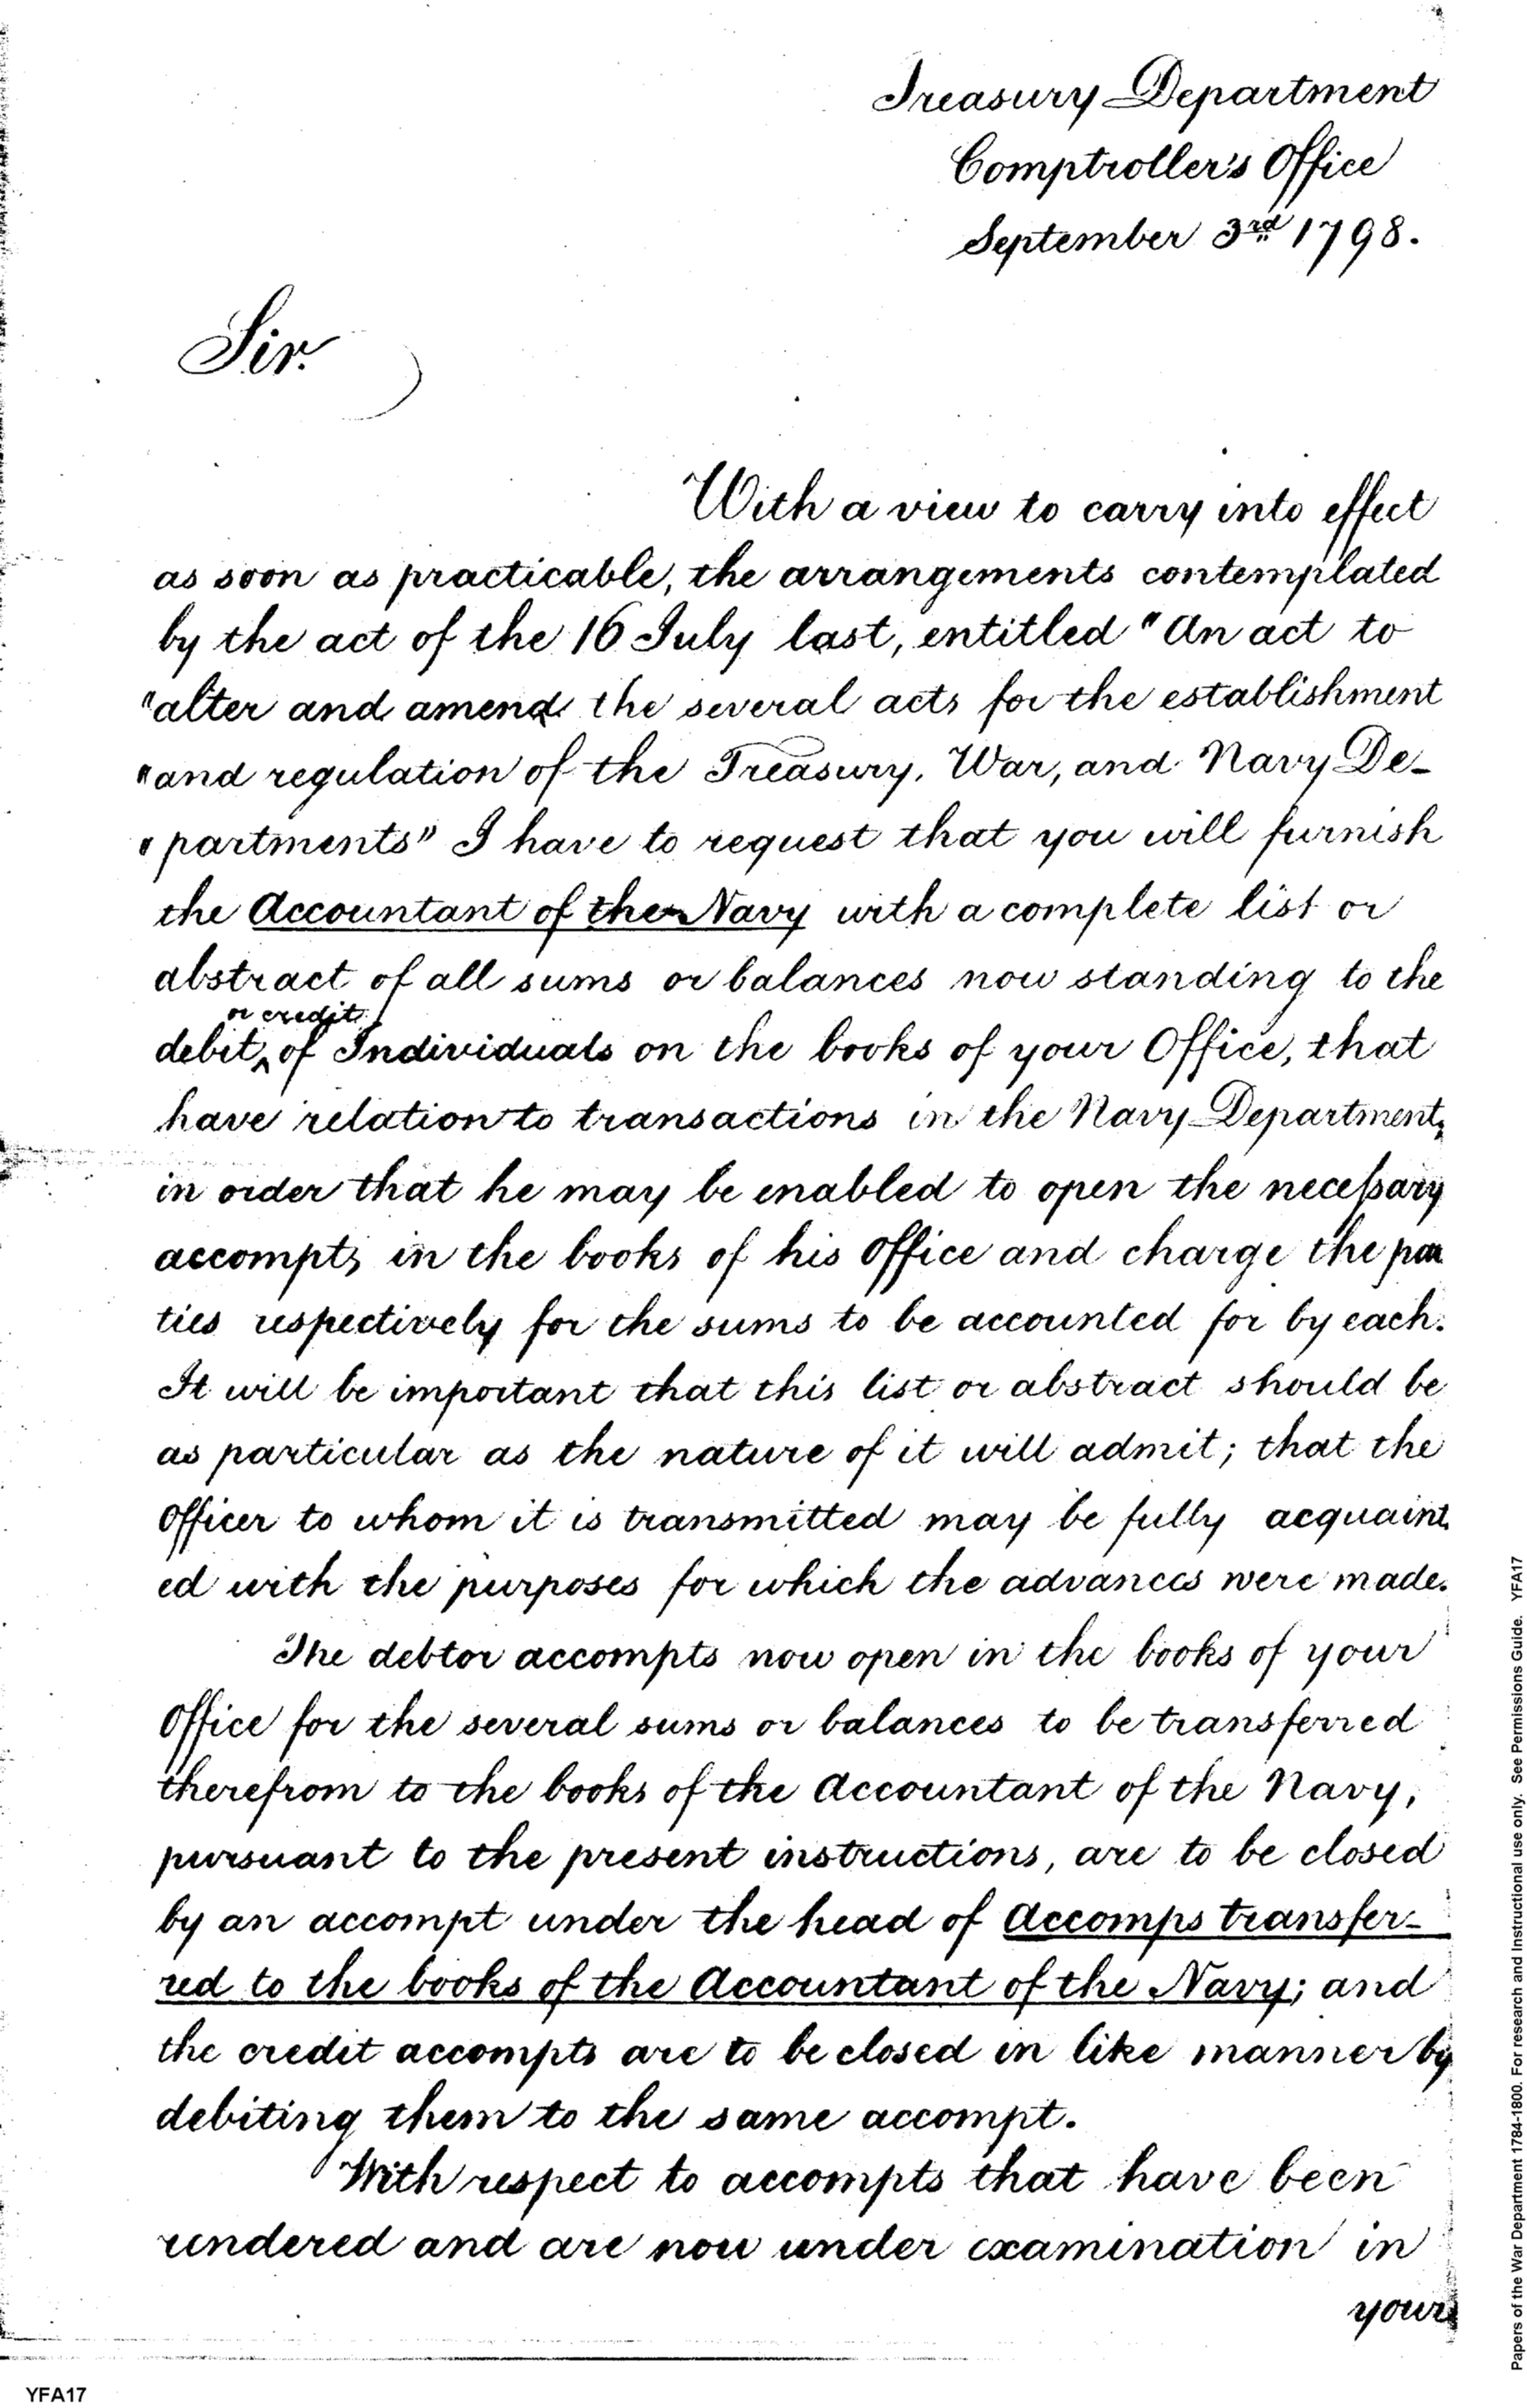 Treasury Department
Comptroller's Office
September 3rd 1798.
Sir.
With a view to carry into effect
as soon as practicable, the arrangements contemplated
by the act of the 16 July last, entitled "An act to
"alter and amend the several acts for the establishment
"and regulation of the Treasury, War, and Navy De-
"partments" I have to request that you will furnish
the Accountant of the Navy with a complete list or
abstract of all sums or balances now standing to the
or credit
debit, of Individuals on the books of your Office, that
have relation to transactions in the Navy Department,
in order that he may be enabled to open the necessary
accompts in the books of his Office and charge the par
ties respectively for the sums to be accounted for by each.
It will be important that this list or abstract should be
as particular as the nature of it will admit; that the
Officer to whom it is transmitted may be fully acquaint
ed with the purposes for which the advances were made.
The debtor accompts now open in the books of your
Office for the several sums or balances to be transferred
therefrom to the books of the Accountant of the Navy,
pursuant to the present instructions, are to be closed
by an accompt under the head of Accomps transfer-
red to the books of the Accountant of the Navy; and
the credit accompts are to be closed in like manner by
debiting them to the same accompt.
With respect to accompts that have been
rendered and are now under examination in
your
YFA17
Papers of the War Department 1784-1800. For research and Instructional use only. See Permissions Guide. YFA17